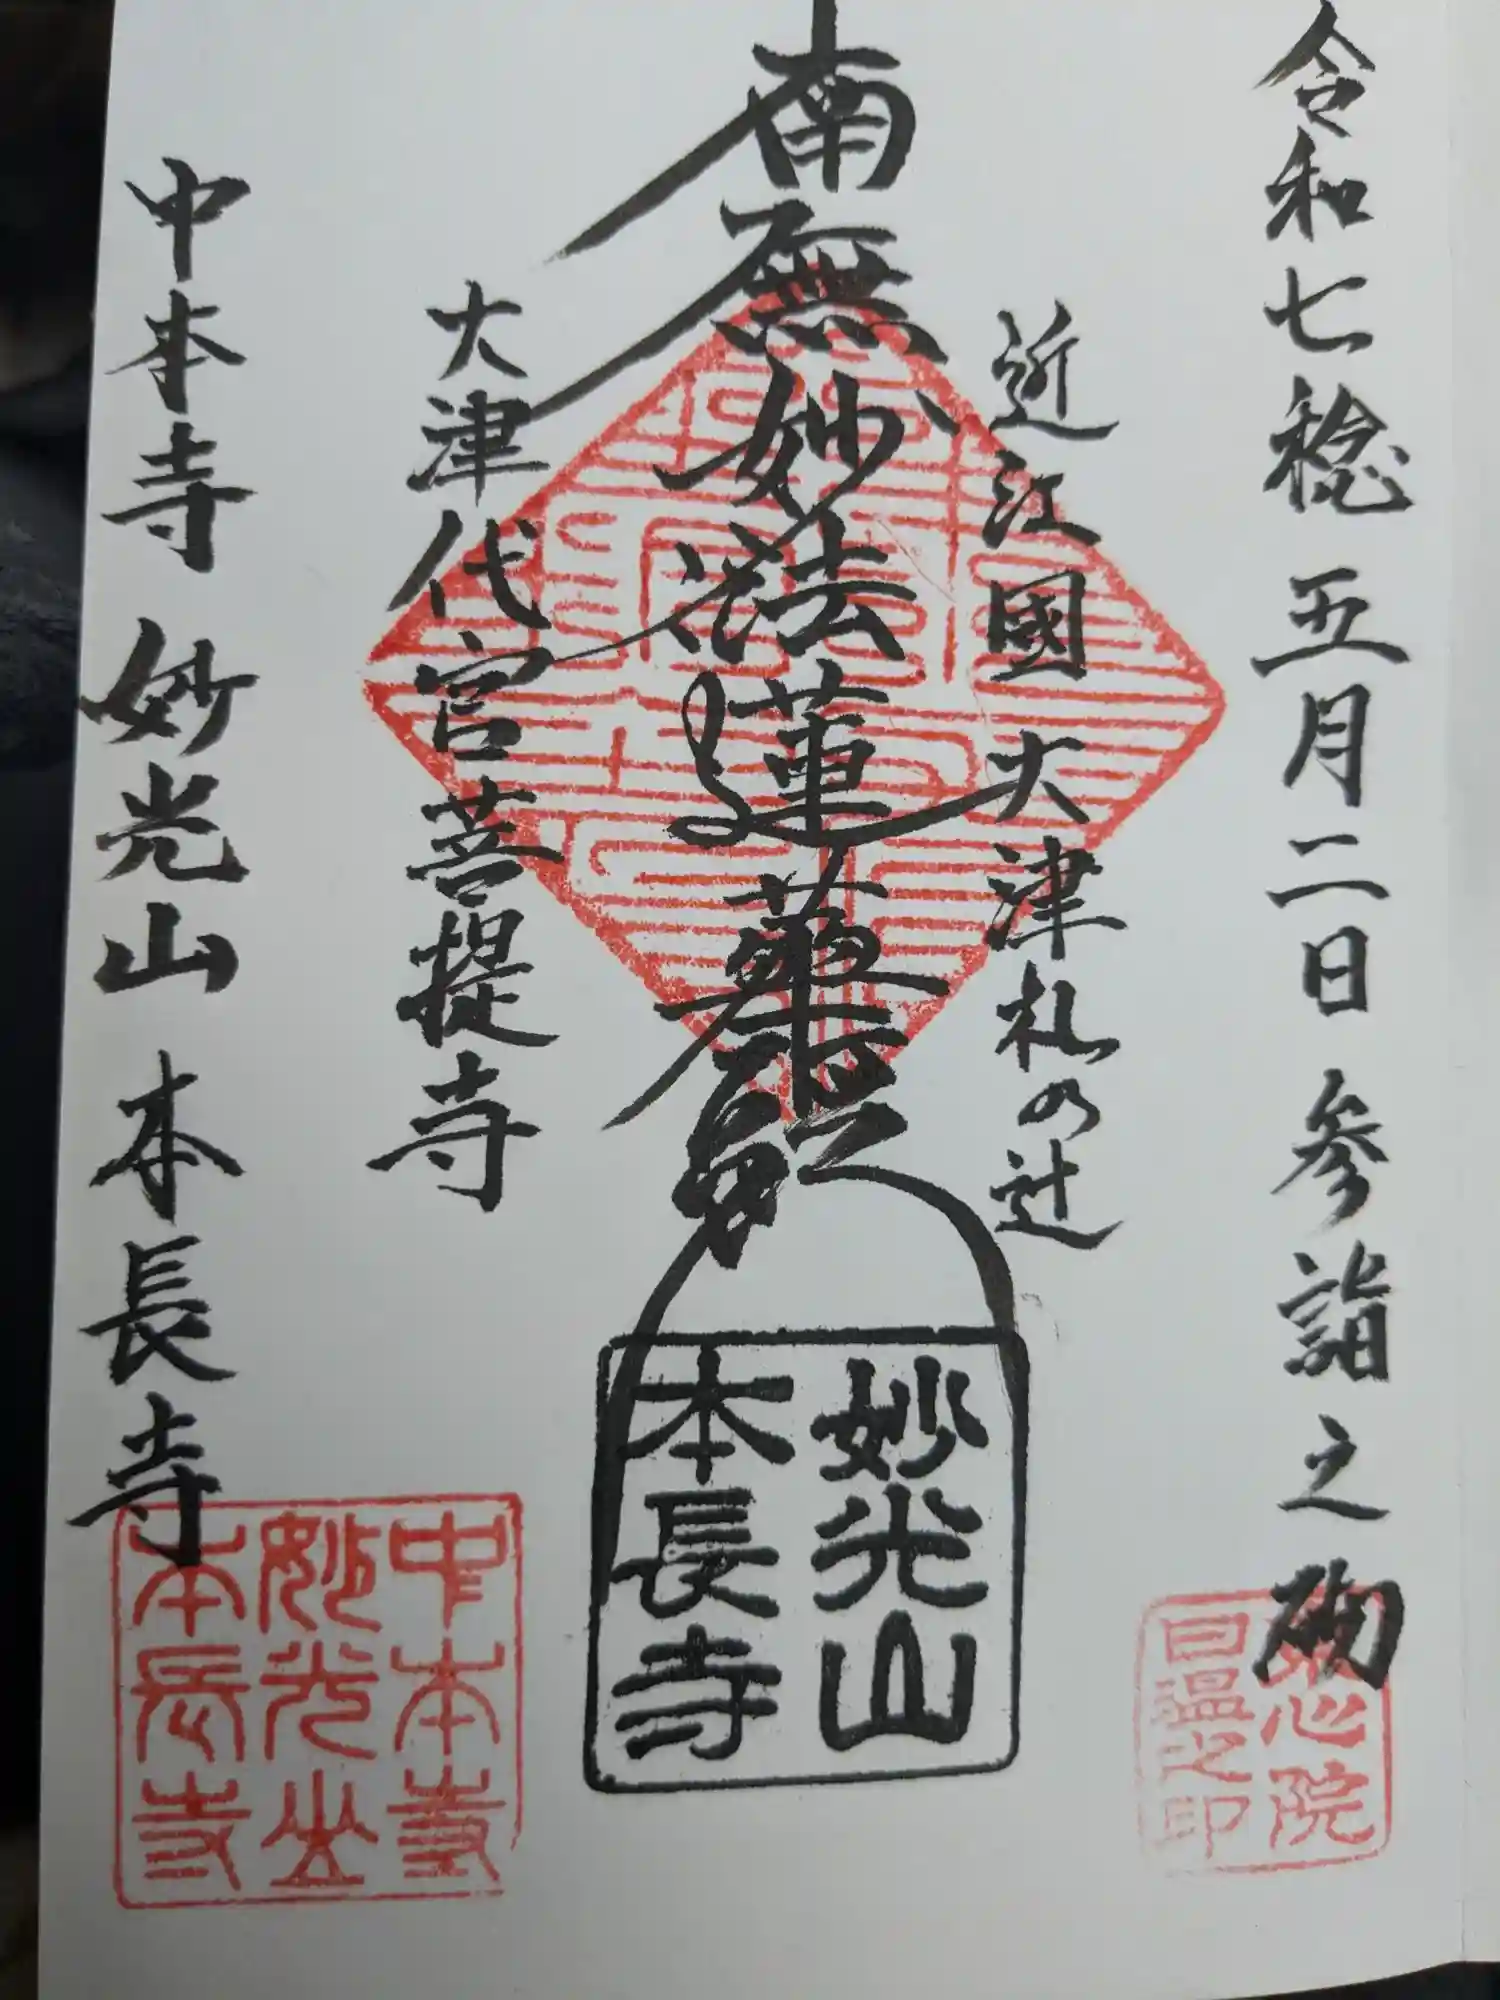 令和七稔 五月二日 参詣之砌
近江國 大津札の辻
南無妙法蓮華経
大津代官菩提寺
中本寺 妙光山 本長寺
妙光山
本長寺
中本寺
妙光山
本長寺
心院
日温之印